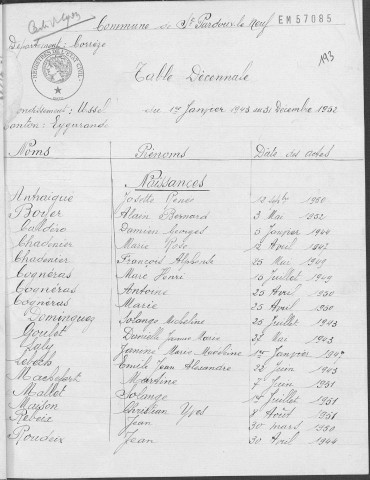 Commune de St Pardoux-le-Neuf EM57085
Département: Corrèze
193
Table Décennale
Arrondissement: Ussel du 1er Janvier 1943 au 31 Décembre 1952
Canton: Eygurande
Noms Prénoms Date des actes
Naissances
Antraigue Josette Renée 1950
Boyer Alain Bernard 3 Mai 1952
Damien Georges 5 Janvier 1944
Chadenier Marie Rose 12 Avril
Chadenier François Alphonse 25 Mai 1949
Cognéras Marc Henri 15 Juillet 1949
Cognéras Antoine 25 Avril 1950
Cognéras Marie 25 Avril 1950
Domingues Solange Micheline 25 Juillet 1943
Goulet Danielle Jeanne Marie Mai 1943
Janine Marie Madeleine 1er Janvier 1947
Emile Jean Alexandre 22 Juin 1943
Machefert Martine 7 Juin 1951
Mallet Solange 1er Juillet 1951
Maison Christian Yves 8 Août 1951
Rebeix Jean 30 mars 1950
Roudeix Jean 30 Avril 1944